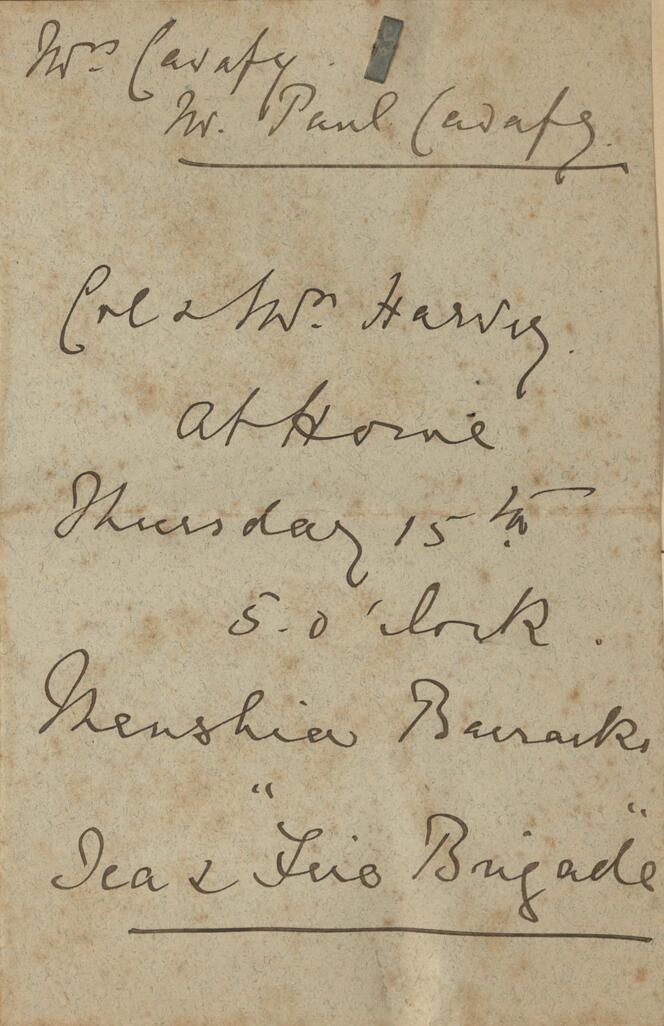 Mrs Cavafy.
Mr. Paul Cavafy.
Col & Mrs Harvey.
At Home
Thursday 15th
5. o'clock.
Menshia Barracks
Tea & "Fire Brigade"